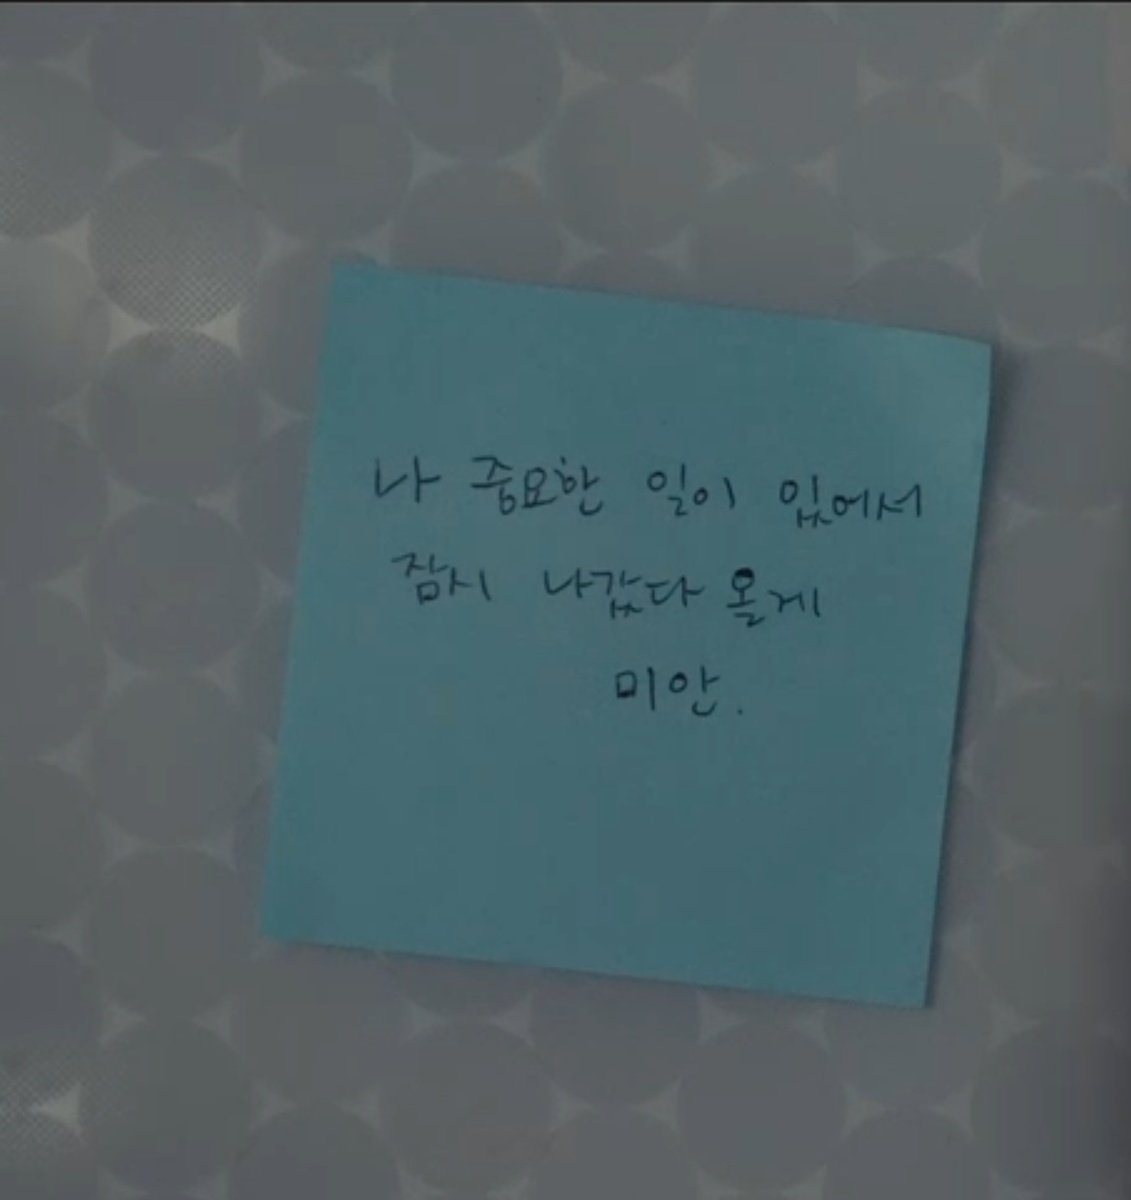 나 중요한 일이 있어서
잠시 나갔다 올게
미안.